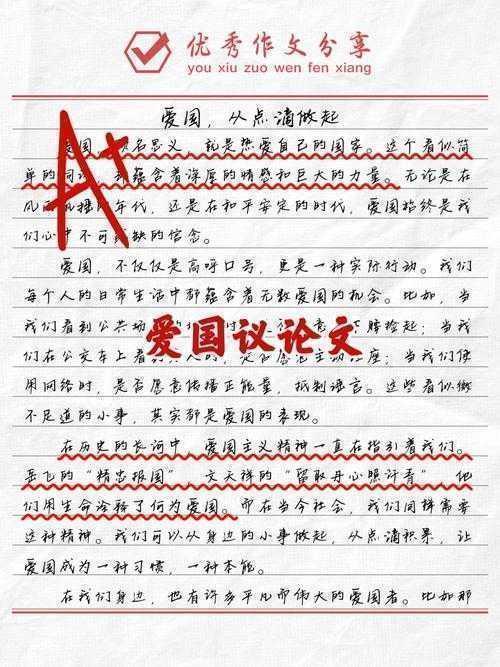 优秀作文分享
you xiu zuo wen fen xiang
A+
爱国，从点滴做起
国，名思义，就是热爱自己的国家。这个看似简
单的词，蕴含着深厚的情感和巨大的力量。无论是在
风雨飘摇的年代，还是在和平安定的时代，爱国始终是我
们心中不可缺的信念。
爱国，不仅仅是高呼口号，更是一种实际行动。我们
每个人的日常生活中都蕴含着无数爱国的机会。比如，当
我们看到公共场时，下腰捡起；当我
爱国议论文
们在公交车上看人时，是否愿意主动让座；当我们使
用网络时，是否愿意传播正能量，抵制谣言。这些看似微
不足道的小事，其实都是爱国的表现。
在历史的长河中，爱国主义精神一直在指引着我们。
岳飞的“精忠报国”，文天祥的“留取丹心照汗青”，他
们用生命诠释了何为爱国。而在当今社会，我们同样需要
这种精神。我们可以从身边的小事做起，从点滴积累，让
爱国成为一种习惯，一种本能。
在我们身边，也有许多平凡而伟大的爱国者。比如那